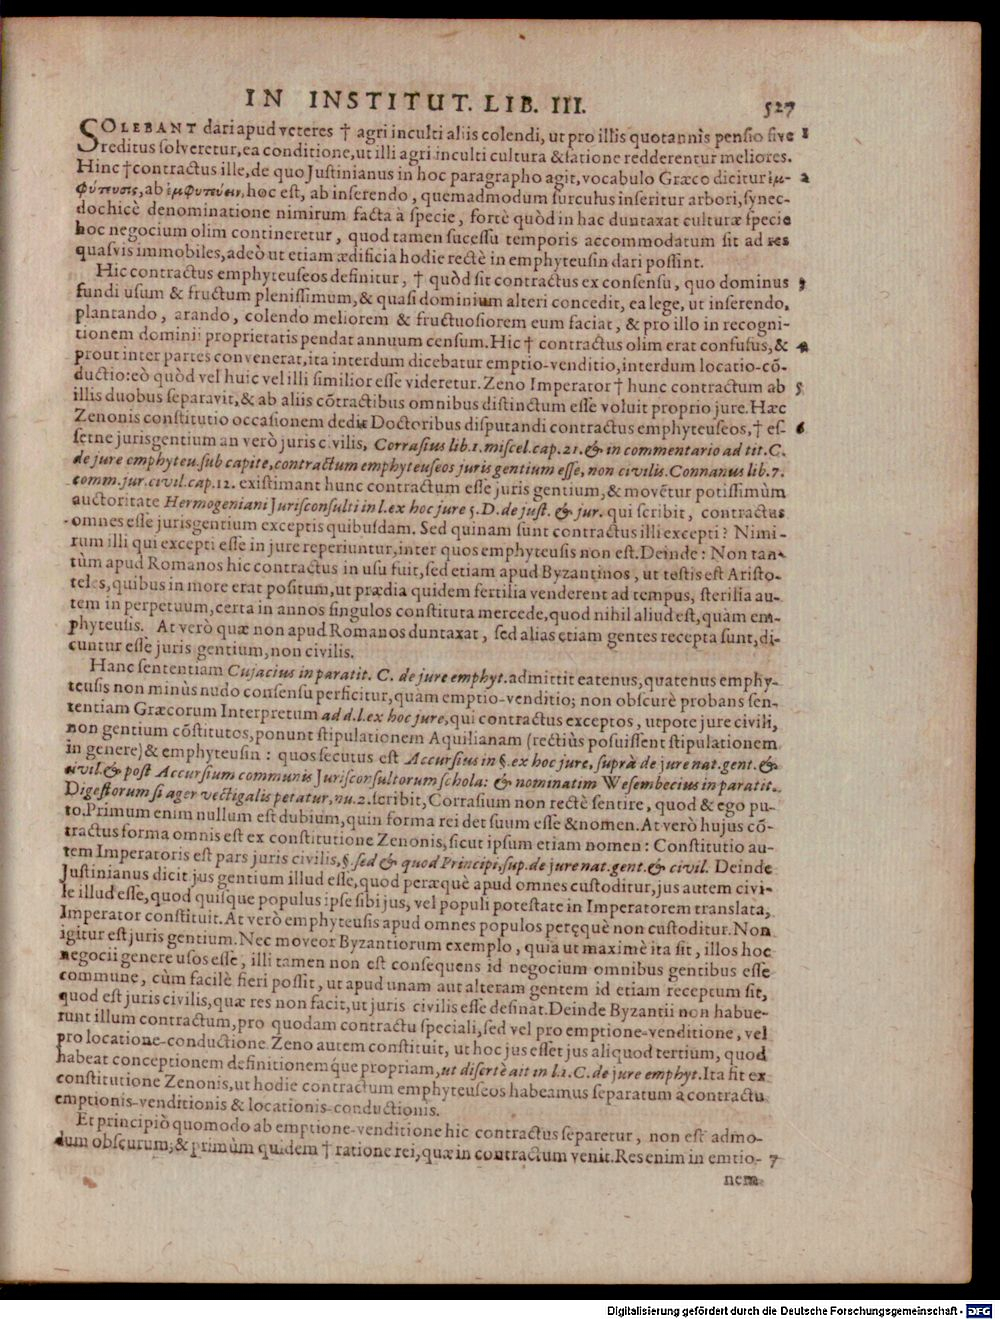 IN INSTITUT. LIB. III. 527
SOLEBANT dari apud veteres † agri inculti aliis colendi, ut pro illis quotannis pensio sive 1
reditus solveretur, ea conditione, ut illi agri inculti cultura & satione redderentur meliores.
Hinc † contractus ille, de quo Justinianus in hoc paragrapho agit, vocabulo Græco dicitur ἐμ- 2
φύτευσις, ab ἐμφυτεύειν, hoc est, ab inserendo, quemadmodum surculus inseritur arbori, synec-
dochicè denominatione nimirum facta à specie, fortè quòd in hac duntaxat culturæ specie
hoc negocium olim contineretur, quod tamen sucessu temporis accommodatum sit ad res
quasvis immobiles, adeò ut etiam ædificia hodie rectè in emphyteusin dari possint.
Hic contractus emphyteuseos definitur, † quòd sit contractus ex consensu, quo dominus 3
fundi usum & fructum plenissimum, & quasi dominium alteri concedit, ea lege, ut inserendo,
plantando, arando, colendo meliorem & fructuosiorem eum faciat, & pro illo in recogni-
tionem dominii proprietatis pendat annuum censum. Hic † contractus olim erat confusus, & 4
prout inter partes convenerat, ita interdum dicebatur emptio-venditio, interdum locatio-cō-
ductio: eò quòd vel huic vel illi similior esse videretur. Zeno Imperator † hunc contractum ab 5
illis duobus separavit, & ab aliis cōtractibus omnibus distinctum esse voluit proprio jure. Hæc
Zenonis constitutio occasionem dedit Doctoribus disputandi contractus emphyteuseos, † es- 6
setne jurisgentium an verò juris civilis, Corrasius lib. 1. miscel. cap. 21. & in commentario ad tit. C.
de jure emphyteu. sub capite, contractum emphyteuseos juris gentium esse, non civilis. Connanus lib. 7.
comm. jur. civil. cap. 12. existimant hunc contractum esse juris gentium, & movētur potissimùm
auctoritate Hermogeniani Jurisconsulti in l. ex hoc jure 5. D. de just. & jur. qui scribit, contractus
omnes esse jurisgentium exceptis quibusdam. Sed quinam sunt contractus illi excepti? Nimi-
rum illi qui excepti esse in jure reperiuntur, inter quos emphyteusis non est. Deinde: Non tan-
tùm apud Romanos hic contractus in usu fuit, sed etiam apud Byzantinos, ut testis est Aristo-
teles, quibus in more erat positum, ut prædia quidem fertilia venderent ad tempus, sterilia au-
tem in perpetuum, certa in annos singulos constituta mercede, quod nihil aliud est, quàm em-
phyteusis. At verò quæ non apud Romanos duntaxat, sed alias etiam gentes recepta sunt, di-
cuntur esse juris gentium, non civilis.
Hanc sententiam Cujacius in paratit. C. de jure emphyt. admittit eatenus, quatenus emphy-
teusis non minùs nudo consensu perficitur, quàm emptio-venditio; non obscurè probans sen-
tentiam Græcorum Interpretum ad d. l. ex hoc jure, qui contractus exceptos, utpote jure civili,
non gentium cōstitutos, ponunt stipulationem Aquilianam (rectiùs posuissent stipulationem
in genere) & emphyteusin: quos secutus est Accursius in §. ex hoc jure, suprà de jure nat. gent. &
civil. & post Accursium communis Jurisconsultorum schola: & nominatim Wesembecius in paratit.
Digestorum si ager vectigalis petatur, nu. 2. scribit, Corrasium non rectè sentire, quod & ego pu-
to. Primum enim nullum est dubium, quin forma rei det suum esse & nomen. At verò hujus cō-
tractus forma omnis est ex constitutione Zenonis, sicut ipsum etiam nomen: Constitutio au-
tem Imperatoris est pars juris civilis, §. sed & quod Principi, sup. de jure nat. gent. & civil. Deinde
Justinianus dicit jus gentium illud esse, quod peræquè apud omnes custoditur, jus autem civi-
le illud esse, quod quisque populus ipse sibi jus, vel populi potestate in Imperatorem translata,
Imperator constituit. At verò emphyteusis apud omnes populos peręquè non custoditur. Non
igitur est juris gentium. Nec moveor Byzantiorum exemplo, quia ut maximè ita sit, illos hoc
negocii genere usos esse, illi tamen non est consequens id negocium omnibus gentibus esse
commune, cùm facilè fieri possit, ut apud unam aut alteram gentem id etiam receptum sit,
quod est juris civilis, quæ res non facit, ut juris civilis esse desinat. Deinde Byzantii non habue-
runt illum contractum, pro quodam contractu speciali, sed vel pro emptione-venditione, vel
pro locatione-conductione. Zeno autem constituit, ut hoc jus esset jus aliquod tertium, quod
habeat conceptionem definitionemque propriam, ut disertè ait in l. 1. C. de jure emphyt. Ita fit ex
constitutione Zenonis, ut hodie contractum emphyteuseos habeamus separatum a contractu
emptionis-venditionis & locationis-conductionis.
Et principiò quomodo ab emptione-venditione hic contractus separetur, non est admo-
dum obscurum; & primùm quidem † ratione rei, quæ in contractum venit. Res enim in emtio- 7
nem
Digitalisierung gefördert durch die Deutsche Forschungsgemeinschaft - DFG